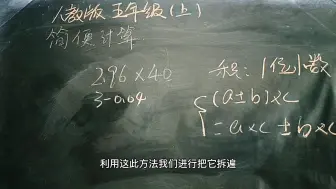 人教版 五年级(上)
简便计算
2.96×40
3-0.04
积:1位小数
(a±b)×c
=a×c±b×c
利用这此方法我们进行把它拆遍